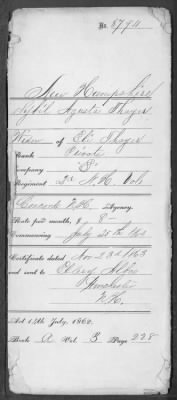 No. 8794
New Hampshire
Sybil Augusta Thayer
Widow of Eli Thayer
Rank Private
Company "I"
Regiment 2d N.H. Vols
Concord N.H. Agency.
Rate per month, $ 8
Commencing July 25th 1862
Certificate dated Nov 23d 1863
and sent to
N.H.
Act 14th July, 1862.
Book A Vol. 3 Page 228